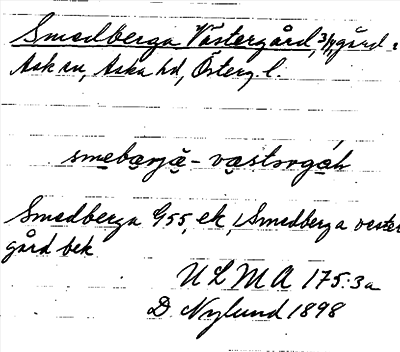 Smedberga Västergård, 3/4 gård :
Ask sn, Aska hd, Österg. l.
smebarja - vastorgáh
Smedberga G55, ek, Smedberga vester
gård bek
ULMA 175:3a
D. Nylund 1898